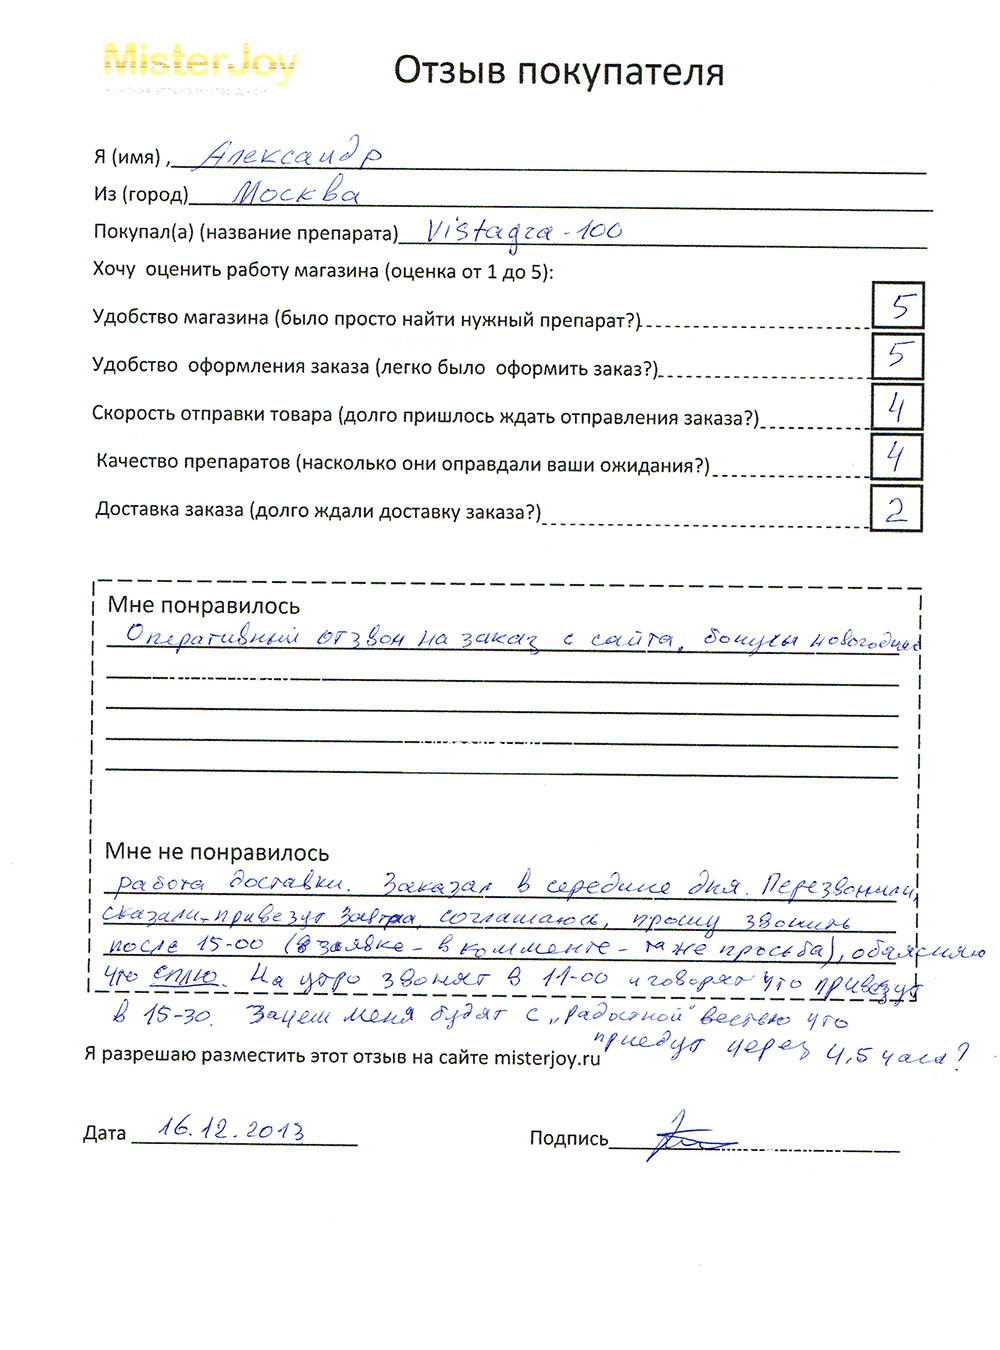 MisterJoy
Отзыв покупателя
Я (имя) , Александр
Из (город) Москва
Покупал(а) (название препарата) Vistagra-100
Хочу оценить работу магазина (оценка от 1 до 5):
Удобство магазина (было просто найти нужный препарат?) 5
Удобство оформления заказа (легко было оформить заказ?) 5
Скорость отправки товара (долго пришлось ждать отправления заказа?) 4
Качество препаратов (насколько они оправдали ваши ожидания?) 4
Доставка заказа (долго ждали доставку заказа?) 2
Мне понравилось
Оперативный отзвон на заказ с сайта, бонусы новогодние
Мне не понравилось
работа доставки. Заказал в середине дня. Перезвонили,
сказали-привезут завтра, соглашаюсь, прошу звонить
после 15-00 (в заявке - в комменте - та же просьба), объясняю
что сплю. На утро звонят в 11-00 и говорят что привезут
в 15-30. Зачем меня будят с „радостной" вестью что
приедут через 4,5 часа?
Я разрешаю разместить этот отзыв на сайте misterjoy.ru
Дата 16.12.2013
Подпись